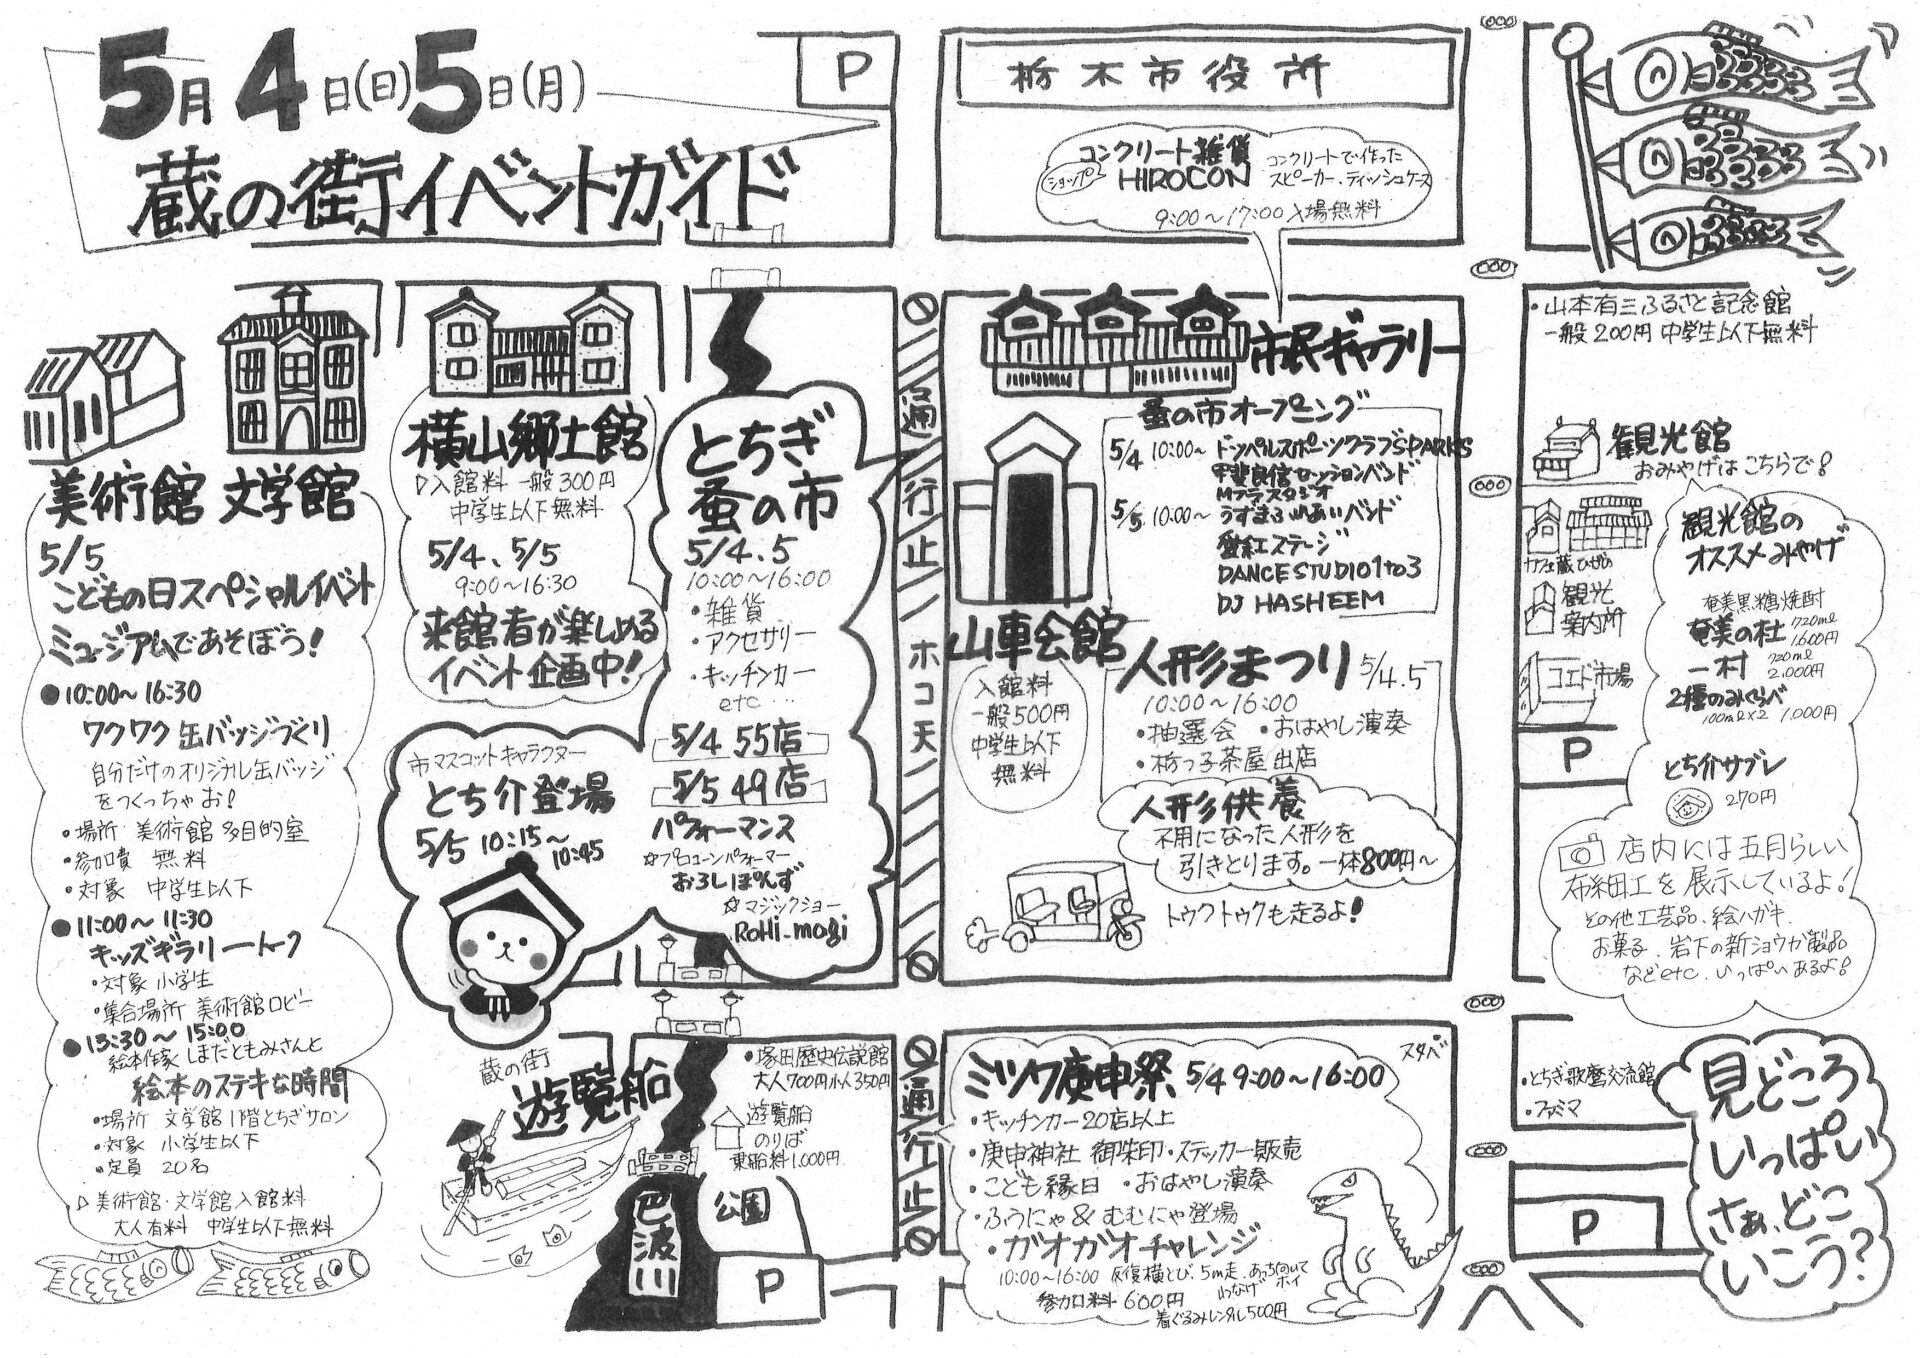 5月4日(日)5日(月)
蔵の街イベントガイド
P
栃木市役所
コンクリート雑貨
ショップ HIROCON
コンクリートで作った
スピーカー、ティッシュケース
9:00～17:00 入場無料
美術館 文学館
5/5
こどもの日スペシャルイベント
ミュージアムであそぼう!
●10:00～16:30
ワクワク缶バッジづくり
自分だけのオリジナル缶バッジ
をつくっちゃお!
・場所 美術館 多目的室
・参加費 無料
・対象 中学生以下
●11:00～11:30
キッズギラリートーク
・対象 小学生
・集合場所 美術館ロビー
●13:30～15:00
絵本作家 しまだともみさんと
絵本のステキな時間
・場所 文学館1階とちぎサロン
・対象 小学生以下
・定員 20名
▷美術館・文学館入館料
大人有料 中学生以下無料
横山郷土館
▷入館料 一般300円
中学生以下無料
5/4、5/5
9:00～16:30
来館者が楽しめる
イベント企画中!
市マスコットキャラクター
とち介登場
5/5 10:15～
10:45
とちぎ
蚤の市
5/4.5
10:00～16:00
・雑貨
・アクセサリー
・キッチンカー
etc…
5/4 55店
5/5 49店
パフォーマンス
☆プロコーンパフォーマー
おろしぽんず
☆マジックショー
RoHi-magi
通行止 ホコ天
市民ギャラリー
蚤の市オープニング
5/4 10:00～ ドッペルスポーツクラブSPARKS
甲斐良信セッションバンド
Mテラスタジオ
5/5 10:00～ うずまふれあいバンド
ステージ
DANCE STUDIO 1to3
DJ HASHEEM
山車会館
入館料
一般500円
中学生以下
無料
人形まつり 5/4.5
10:00～16:00
・抽選会 ・おはやし演奏
・栃っ子茶屋出店
人形供養
不用になった人形を
引きとります。一体800円～
トゥクトゥクも走るよ!
・山本有三ふるさと記念館
一般200円 中学生以下無料
観光館
おみやげはこちらで!
カフェ蔵
観光
案内所
コエド市場
P
観光館の
オススメみやげ
奄美黒糖焼酎
奄美の杜 720ml
1,600円
一村 720ml
2,000円
2種のみくらべ
100ml×2 1,000円
とち介サブレ
270円
店内には五月らしい
布細工を展示しているよ!
その他工芸品、絵ハガキ、
お菓子、岩下の新ショウガ製品
などetc.いっぱいあるよ!
蔵の街
遊覧船
・塚田歴史伝説館
大人700円小人350円
遊覧船
のりば
乗船料1,000円
公園
巴波川
P
通行止
ミツワ庚申祭 5/4 9:00～16:00
・キッチンカー20店以上
・庚申神社 御朱印・ステッカー販売
・こども縁日 ・おはやし演奏
・ふうにゃ&むむにゃ登場
・ガオガオチャレンジ
10:00～16:00 反復横とび、5m走、あっち向いてホイ
わなげ
参加料 600円
着ぐるみレンタル500円
スタバ
・とちぎ歌麿交流館
・ファミマ
P
見どころ
いっぱい
さぁ、どこ
いこう?